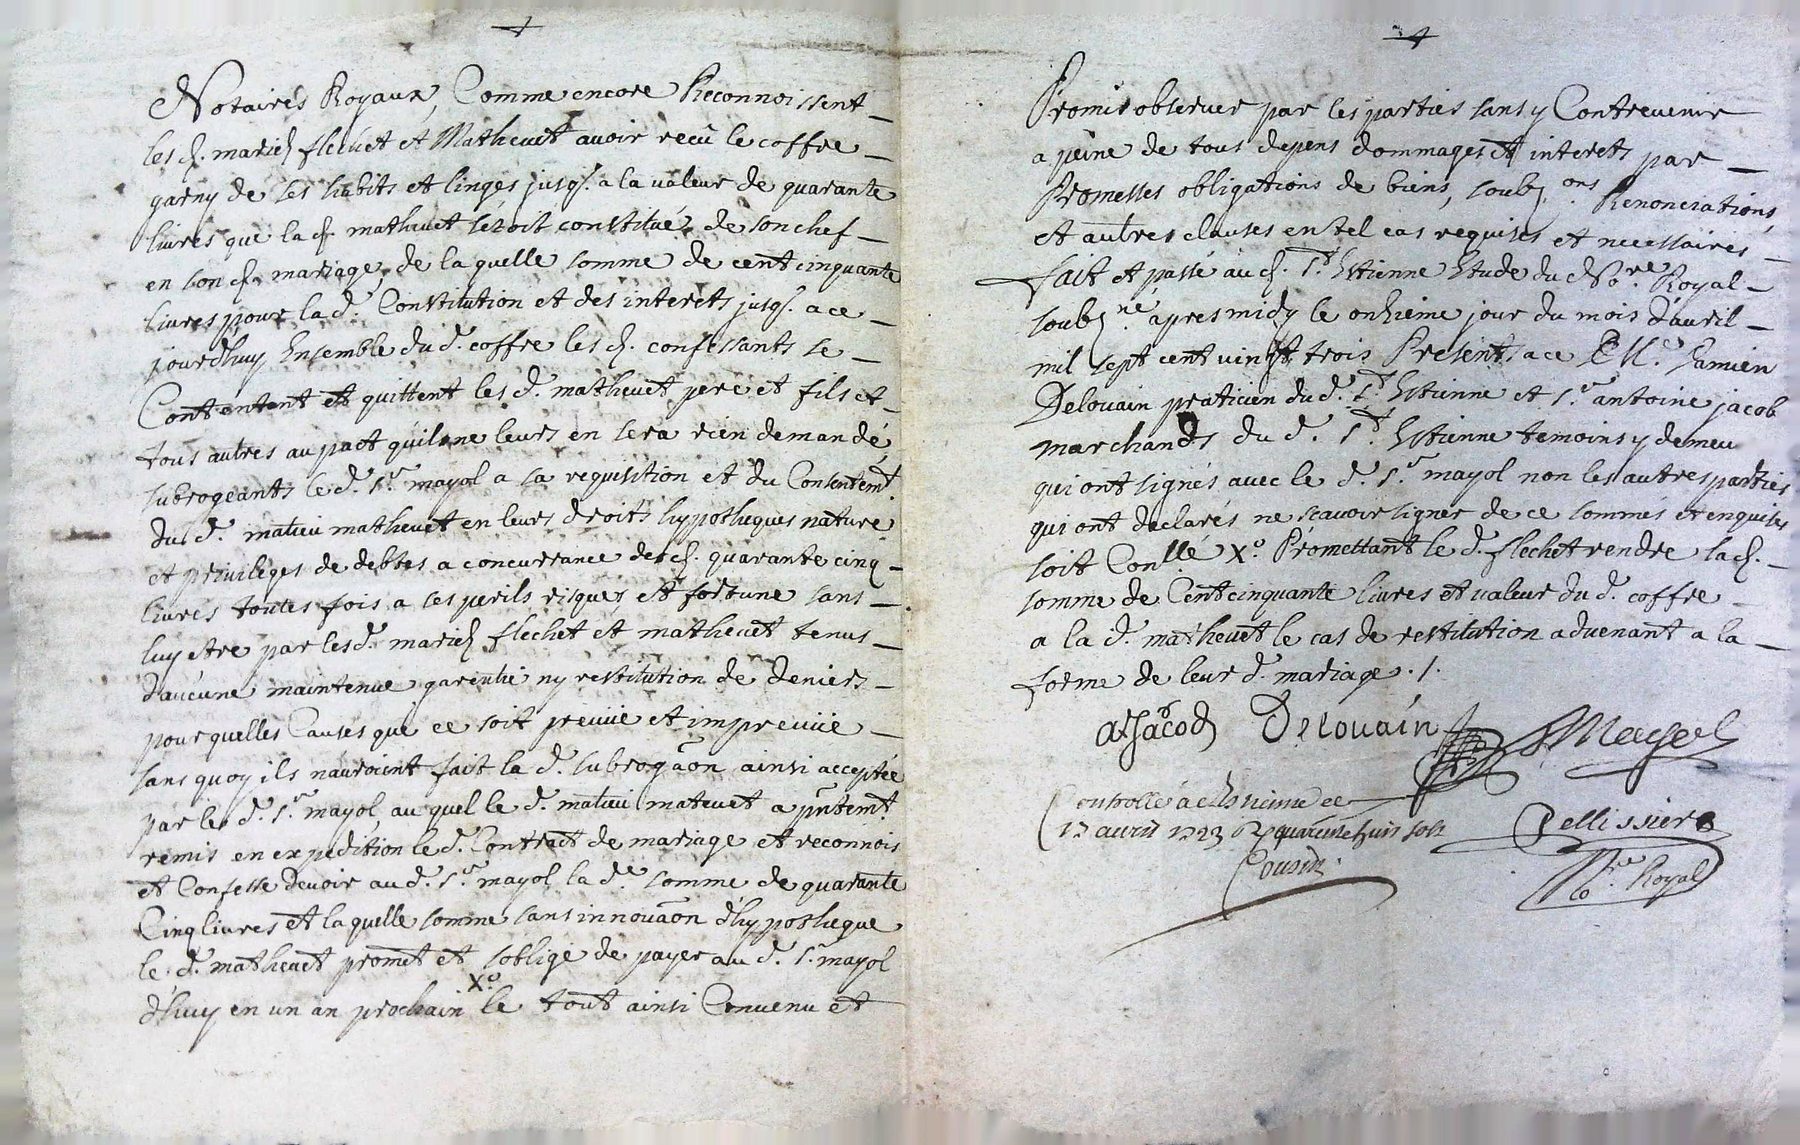 Notaires Royaux, Comme encore Reconnoissent
les d. mariés flechet et Mathevet avoir reçû le coffre
garny de ses habits et linges jusq. a la valeur de quarante
livres que la d. mathevet sézoit constituéz de son chef
en son d. mariage, de laquelle somme de cent cinquante
livres pour la d. Constitution et des interets jusq. a ce
jourdhuy Ensemble du d. coffre les d. confessants se
Contentent et quittent les d. mathevet pere et fils et
tous autres au pact quil ne leurs en sera rien demandé
subrogeants le d. Sr. mayol a sa requisition et du Consentemt.
du d. matieu mathevet en leurs droits hypotheques nature
et privileges de debtes a concurrance des d. quarante cinq
livres toutes fois a ses perils risques et fortune sans
luy etre par les d. mariés flechet et mathevet tenus
d'aucune maintenue garentie ny restitution de deniers
pour quelles Causes que ce soit preuüe et impreuüe
sans quoy ils nauroient fait la d. subrogaõn ainsi acceptée
par le d. Sr. mayol, au quel le d. matieu matevet a pntemt.
remis en expedition le d. Contract de mariage et reconnois
et Confesse devoir au d. Sr. mayol la de. somme de quarante
Cinq livres et laquelle somme sans innovaõn d'hypotheque
le d. mathevet promet et soblige de payer au d. Sr. mayol
d'huy en un an prochain Xo. le tout ainsi Convenu et
Promis observer par les parties sans y Contrevenir
a peine de tous depens dommages et interets par
Promesses obligations de biens, soub.ons Renonciations
et autres clauses en tel cas requises et necessaires
fait et passé au d. St. Estienne Etude du No.re Royal
soub.ne apres midy le onzieme jour du mois d'avril
mil sept cent vingt trois Presents a ce Me. Damien
Delouain praticien du d. St. Estienne et Sr. antoine jacob
marchands du d. St. Estienne temoins y demeu
qui ont signés avec le d. Sr. mayol non les autres parties
qui ont declarés ne scavoir signer de ce sommés et enquises
soit Con.llé Xo. Promettant le d. flechet rendre la d.
somme de Cent cinquante livres et valeur du d. coffre
a la d. mathevet le cas de restitution advenant a la
forme de leur d. mariage . / .
a Jacob Delouain Mayol
Controllé a St Etienne ce
13 avril 1723 R quarente huit sols
Cousin
Pellissier
No.re Royal